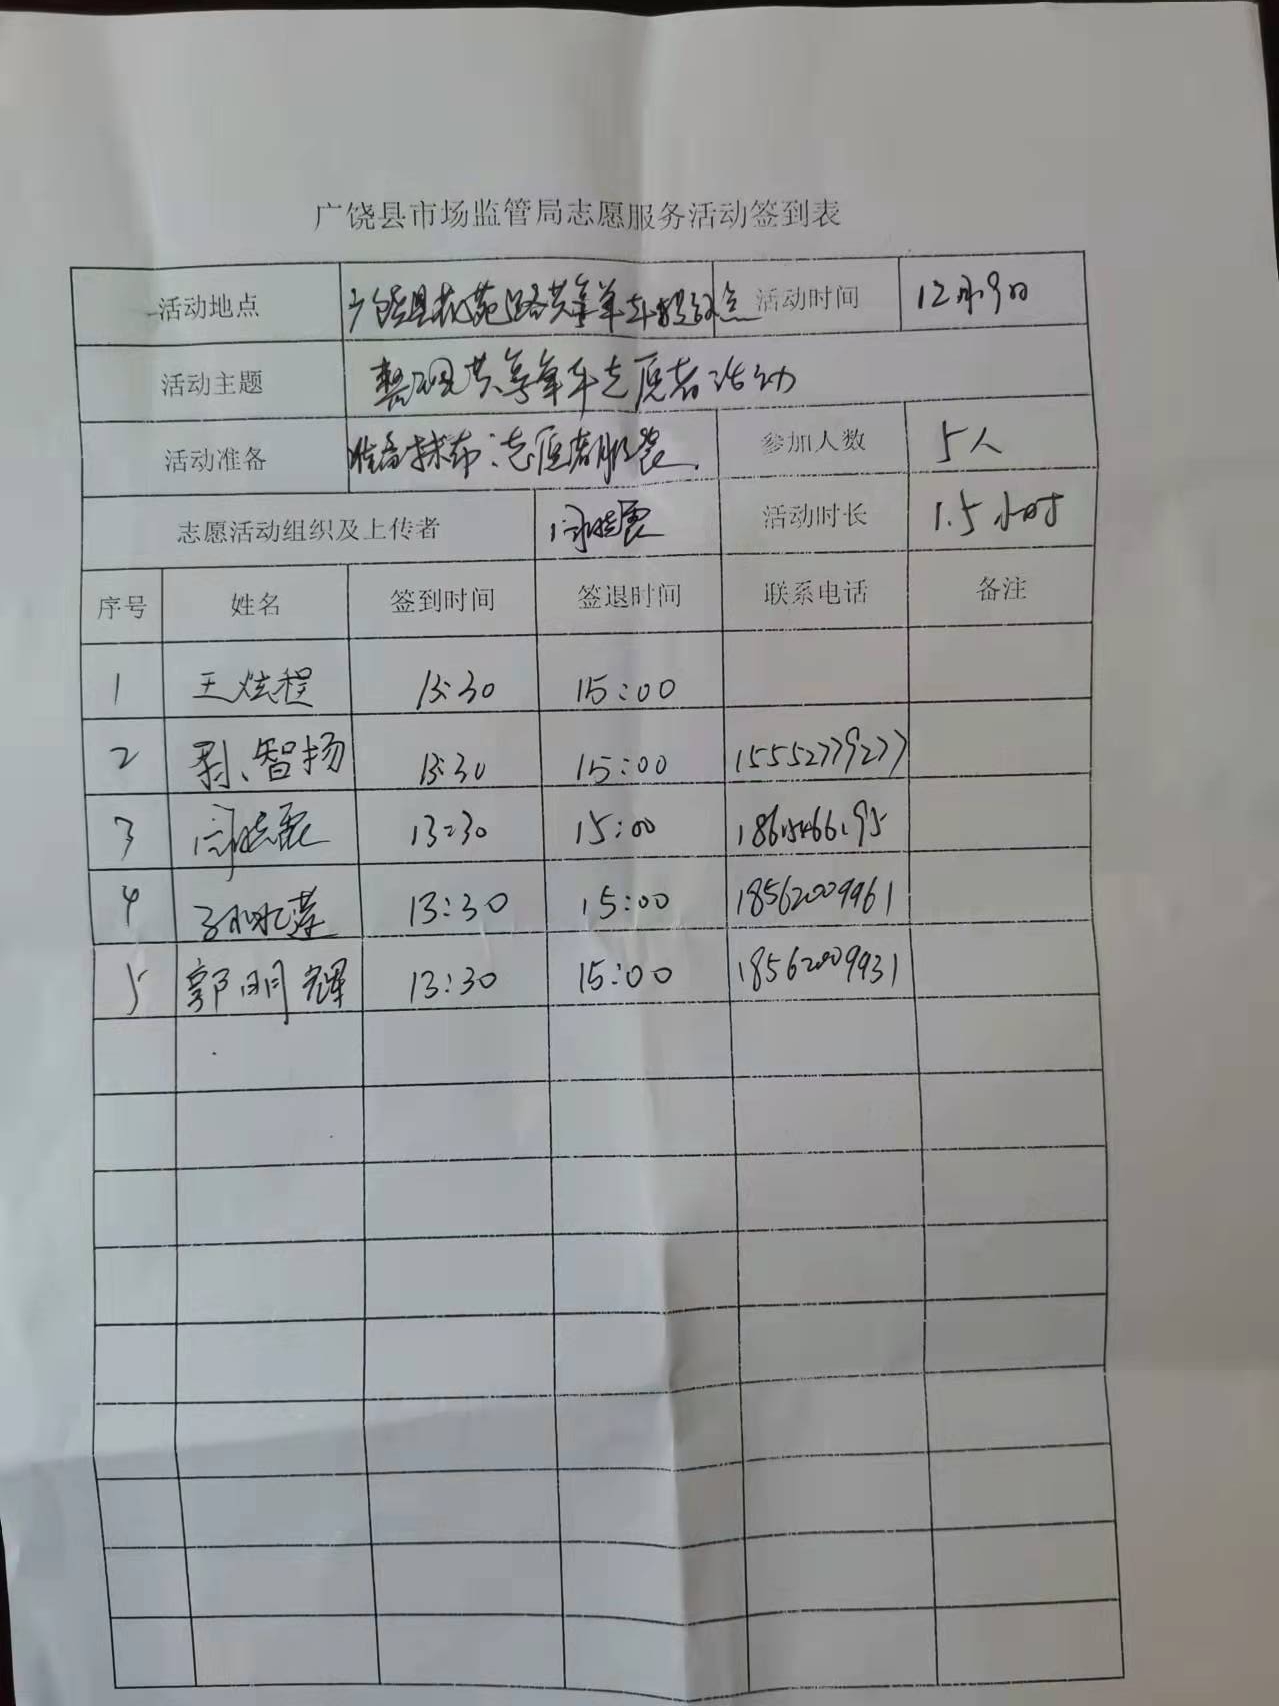 广饶县市场监管局志愿服务活动签到表
活动地点 广饶县花苑路共享单车投放点 活动时间 12月9日
活动主题 整理共享单车志愿者活动
活动准备 准备抹布;志愿者服装. 参加人数 5人
志愿活动组织及上传者 活动时长 1.5小时
序号 姓名 签到时间 签退时间 联系电话 备注
1 王炫程 13:30 15:00
2 智扬 13:30 15:00 15552779277
3 13:30 15:00
4 13:30 15:00 18562009961
5 郭明辉 13:30 15:00 18562009931